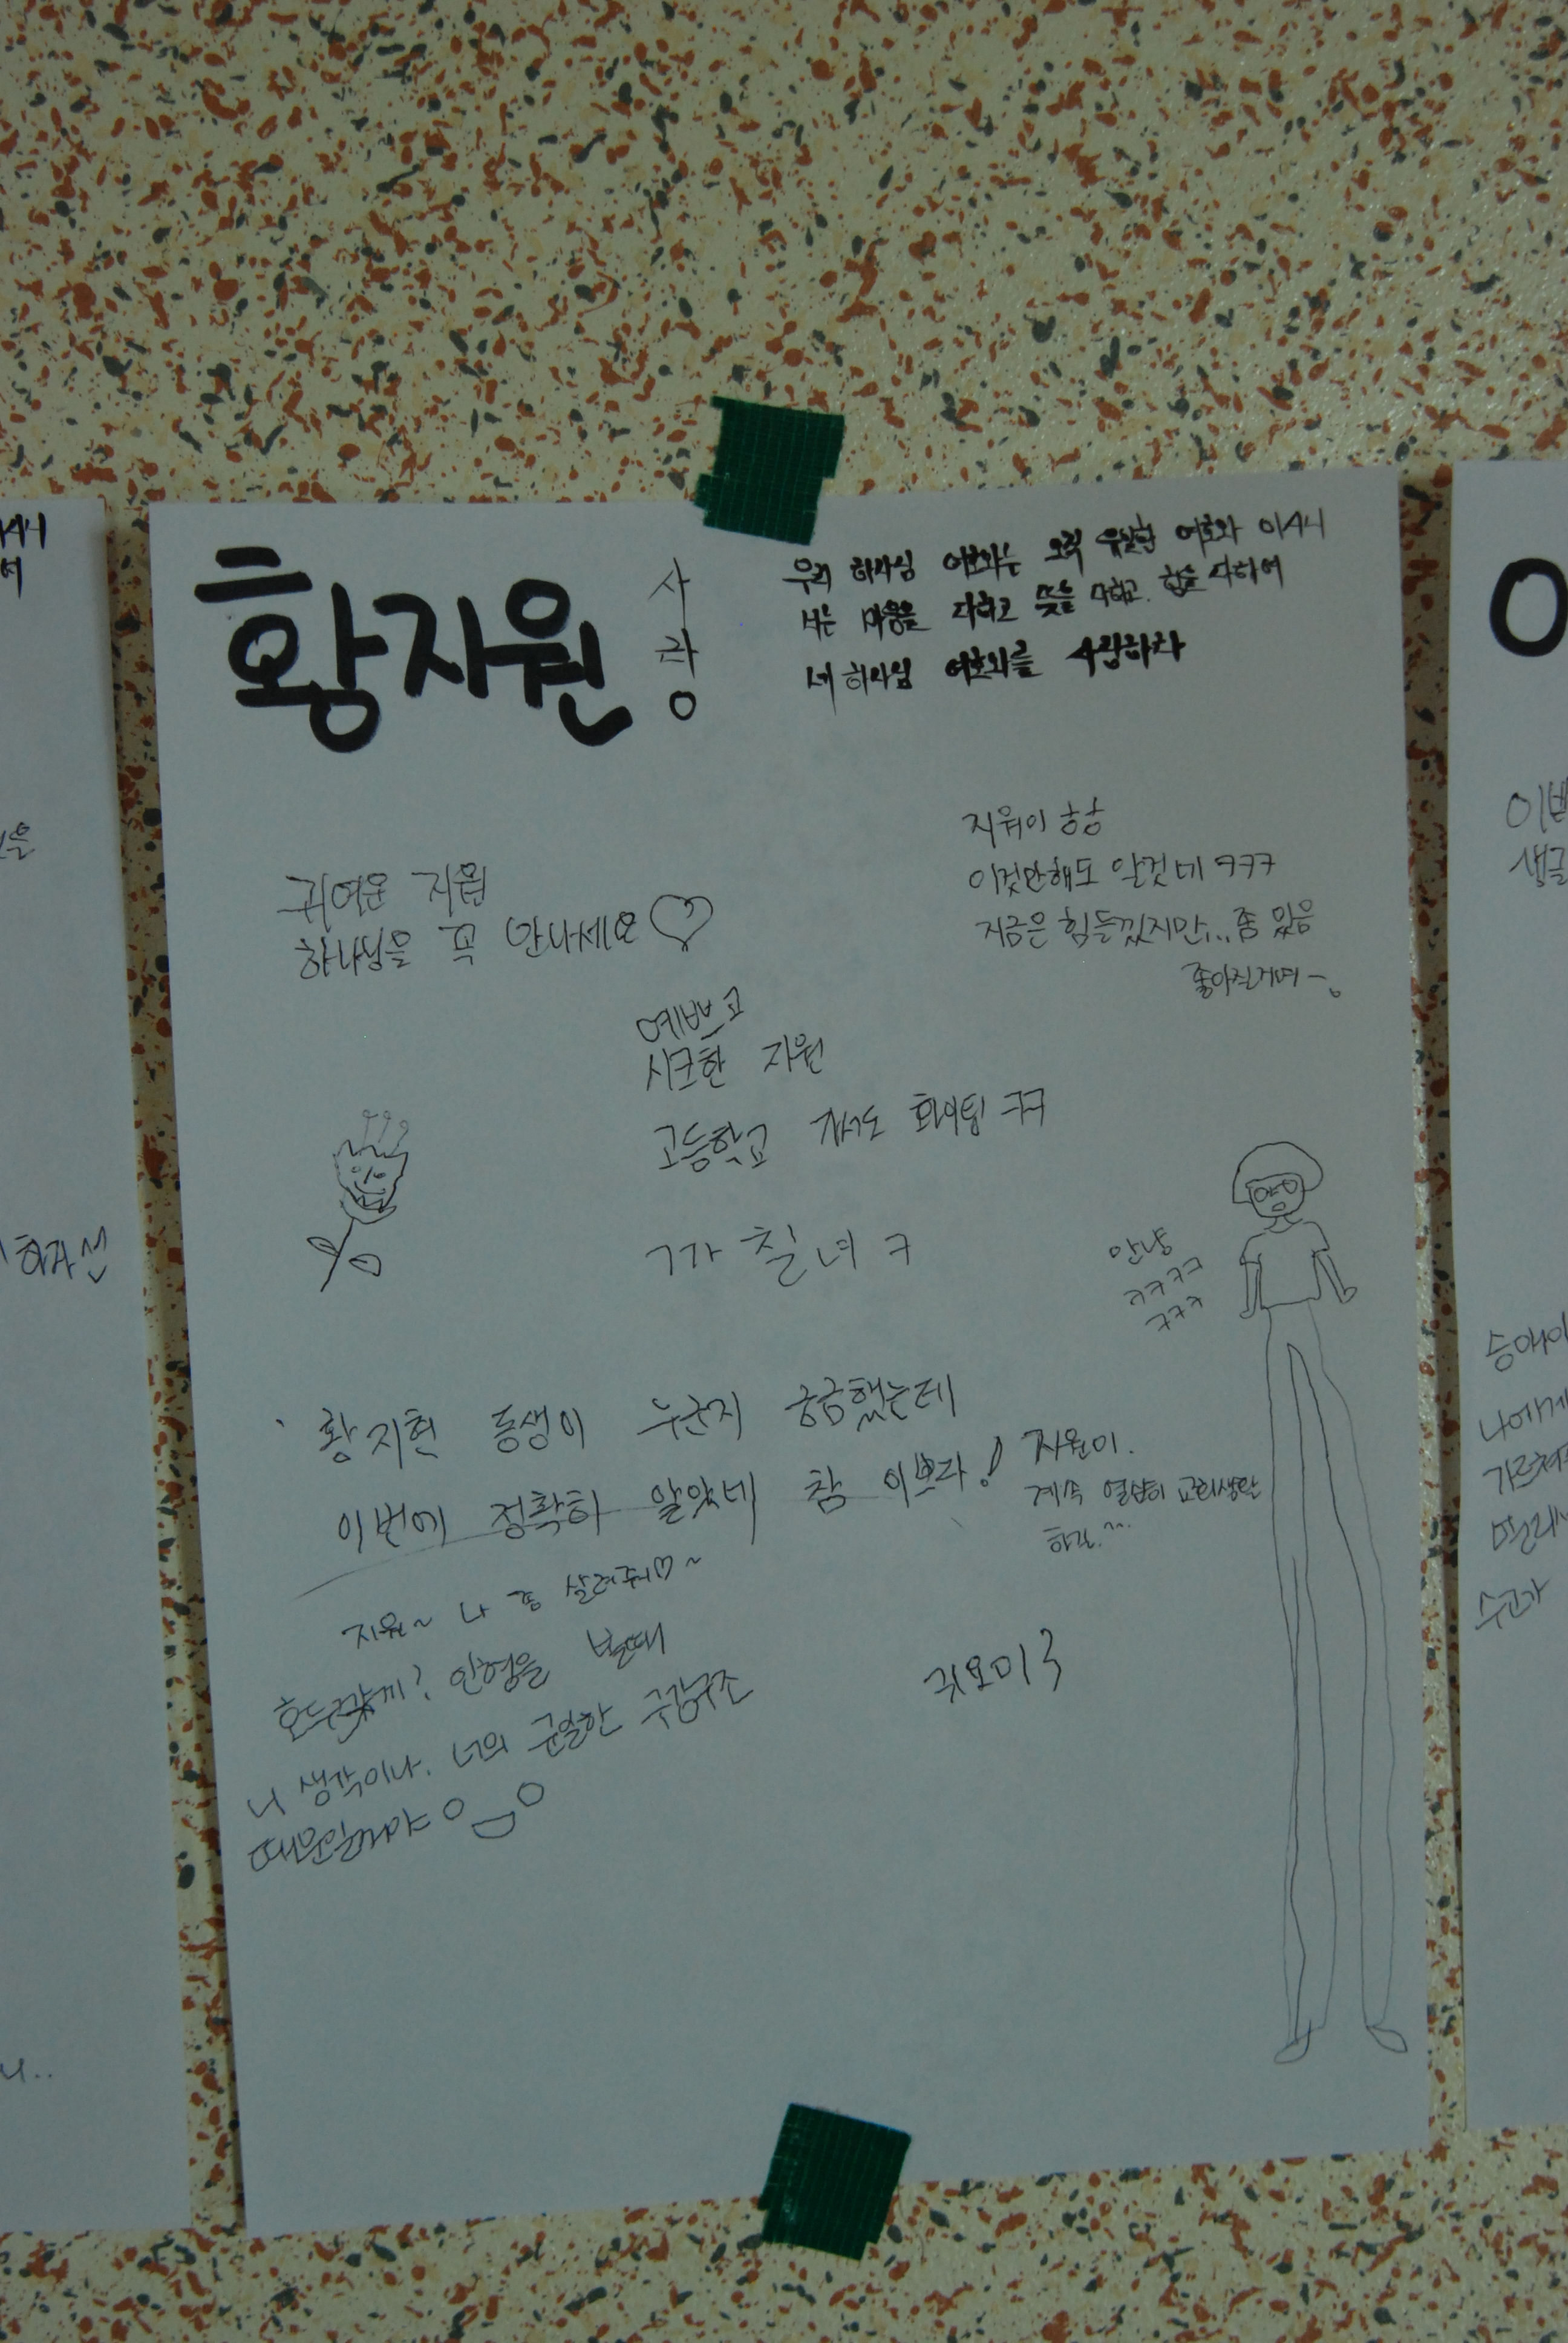 황지원
사랑
우리 하나님 여호와는 오직 유일한 여호와 이시니
너는 마음을 다하고 뜻을 다하고 힘을 다하여
네 하나님 여호와를 사랑하라
귀여운 지원
하나님을 꼭 만나세요♡
지워이 항상
이것만해도 알것네 ㅋㅋㅋ
지금은 힘들겠지만... 좀 있음
좋아질거여~
예쁘고
시크한 지원
고등학교 가서도 화이팅 ㅋㅋ
ㄱ가 칠 녀 ㅋ
안냥
ㅋㅋㅋㅋ
ㅋㅋㅋ
황지현 동생이 누군지 궁금했는데
이번에 정확히 알았네 참 이쁘다!
지원이.
계속 열심히 교회생활
하길.^^
지원~ 나 좀 살려줘♡~
인형을 볼때
니 생각이나. 너의 균일한
귀요미3